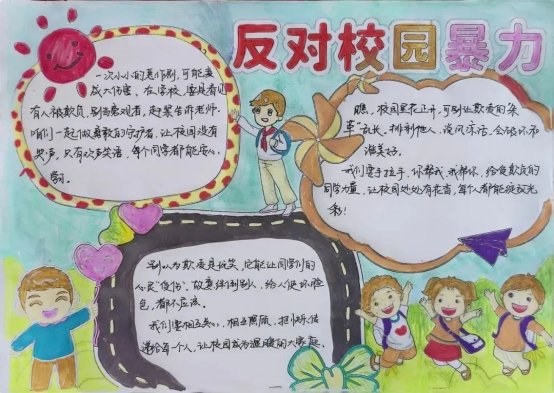 反对校园暴力
一次小小的恶作剧，可能造
成大伤害。在学校，要是看见
有人被欺负，别当旁观者，赶紧告诉老师。
咱们一起做勇敢的守护者，让校园没有
哭声，只有欢声笑语，每个同学都能安心
学习。
瞧，校园里花正开，可别让欺凌的"杂
草"疯长。排挤他人、说风凉话，会破坏和
谐美好。
我们要手拉手，你帮我，我帮你，给受欺负的
同学力量，让校园处处有花香，每个人都能绽放光
彩！
别以为欺凌是玩笑，它能让同学们的
心灵"受伤"。故意绊倒别人、给人使坏脸
色，都不应该。
我们要相互关心，相互照顾，把快乐传
递给每一个人，让校园成为温暖的大家庭。